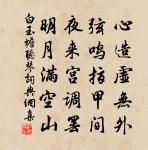 心造虛無外
弦鳴指甲間
夜來宮調罷
明月滿空山
白玉蟾聽琴詞典網集